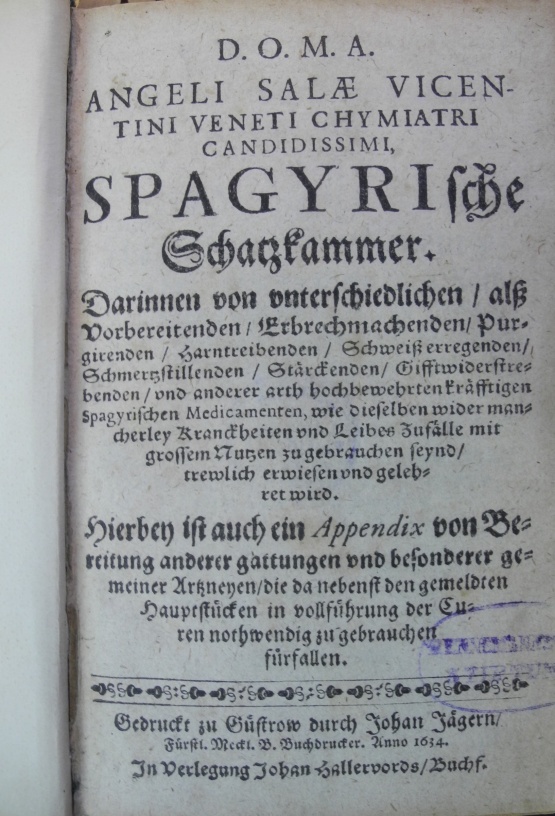 D. O. M. A.
ANGELI SALÆ VICEN-
TINI VENETI CHYMIATRI
CANDIDISSIMI,
SPAGYRIsche
Schatzkammer.
Darinnen von vnterschiedlichen / alß
Vorbereitenden / Erbrechmachenden / Pur-
girenden / Harntreibenden / Schweiß erregenden /
Schmertzstillenden / Stärckenden / Gifftwiderstre-
benden / vnd anderer arth hochbewehrten kräfftigen
Spagyrischen Medicamenten, wie dieselben wider man-
cherley Kranckheiten vnd Leibes Zufälle mit
grossem Nutzen zugebrauchen seynd /
trewlich erwiesen vnd geleh-
ret wird.
Hierbey ist auch ein Appendix von Be-
reitung anderer gattungen vnd besonderer ge-
meiner Artzneyen / die da nebenst den gemeldten
Hauptstücken in vollführung der Cu-
ren nothwendig zu gebrauchen
fürfallen.
Gedruckt zu Güstrow durch Johan Jägern /
Fürstl. Meckl. B. Buchdrucker. Anno 1634.
In Verlegung Johan Hallervords / Buchf.